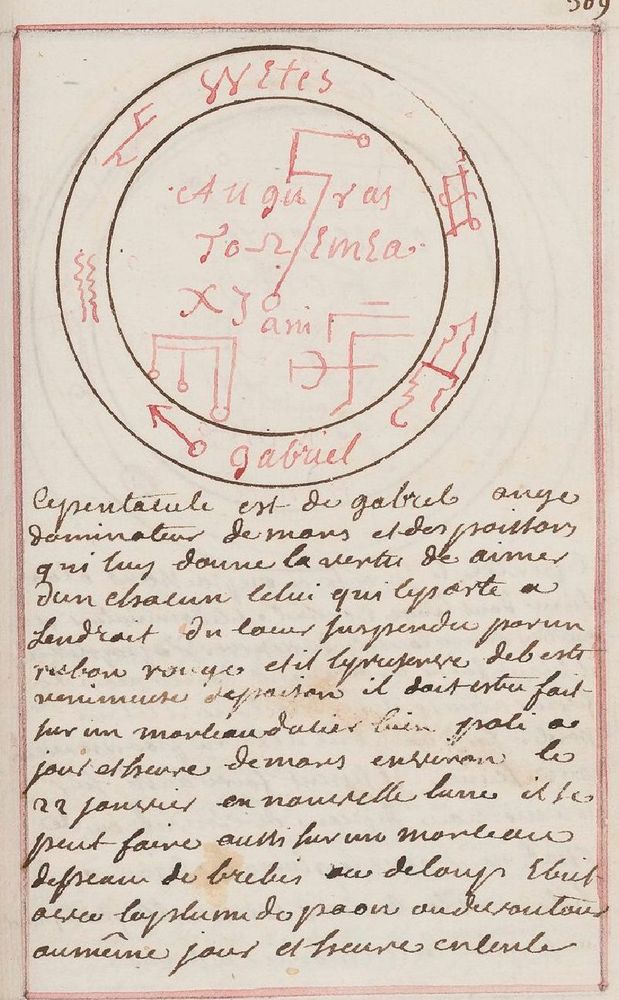 309
Wetes
Auguras
To Ω Emea
X J ani
gabriel
Cepentacule est de gabriel ange
dominateur de mars et des poissons
qui luy donne la vertu de aimer
dun chacun Celui qui leporte a
Lendroit du Coeur suspendu par un
ruban rouge et il le preserve de best
venimeuse de poison il doit estre fait
sur un morceau dacier bien poli a
jour et heure de mars environ le
22 janvier en nouvelle lune il se
peut faire aussi sur un morceau
de peau de brebis ou de loup Ecrit
avec laplume de paon ou de vautour
au même jour et heure